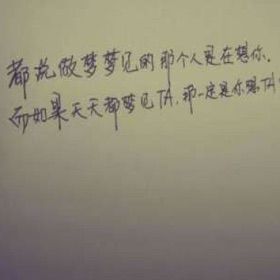 都说做梦梦见的那个人是在想你.
而如果天天都梦见TA,那一定是你想TA